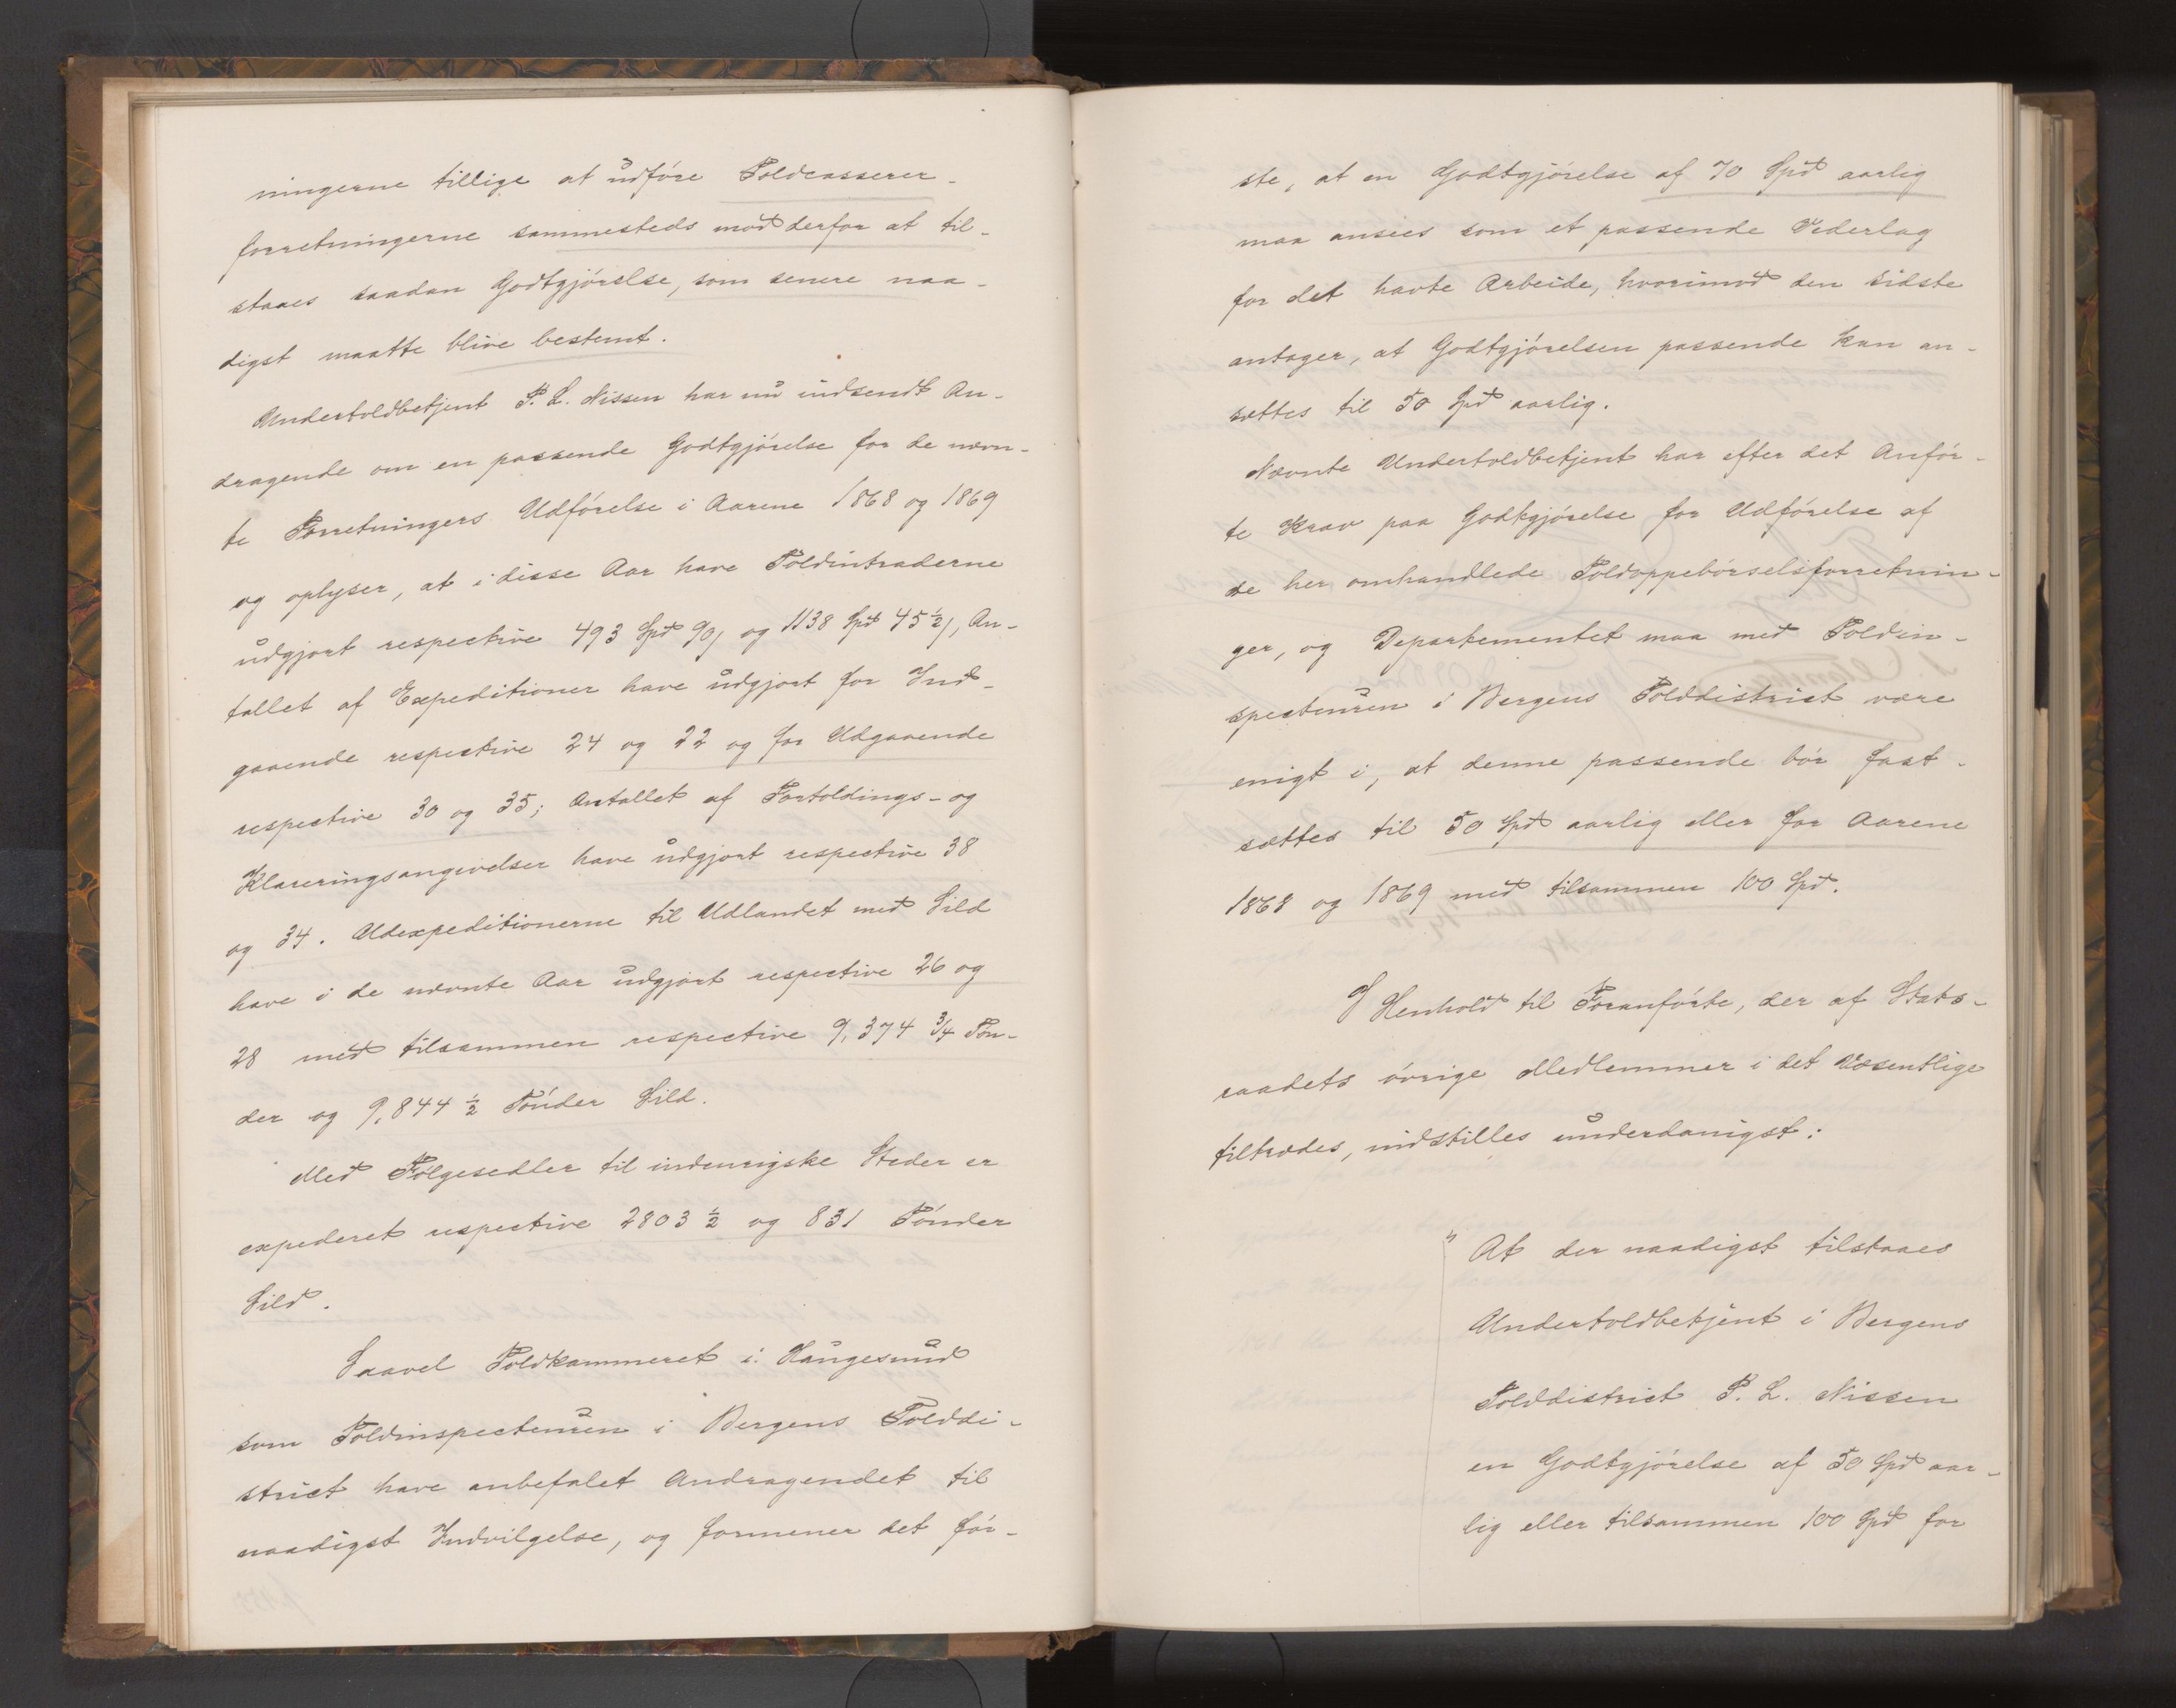 ningerne tillige at udføre Toldcasserer-
forretningerne sammesteds mod derfor at til-
staaes saadan Godtgjørelse, som senere naa-
digst maatte blive bestemt.
Undertoldbetjent P. L. Nissen har nu indsendt An-
dragende om en passende Godtgjørelse for de nævn-
te Forretningers Udførelse i Aarene 1868 og 1869
og oplyser, at i disse Aar have Toldintraderne
udgjort respective 493 Spd 90/ og 1138 Spd 45½/, An-
tallet af Expeditioner have udgjort for Ind-
gaaende respective 24 og 22 og for Udgaaende
respective 30 og 35; Antallet af Fortoldings- og
Klareringsangivelser have udgjort respective 38
og 34. Udexpeditionerne til Udlandet med Sild
have i de nævnte Aar udgjort respective 26 og
28 med tilsammen respective 9,374 ¾ Tøn-
der og 9,844 ½ Tønder Sild.
Med Følgesedler til indenrigske Steder er
expederet respective 2803 ½ og 831 Tønder
Sild.
Saavel Toldkammeret i Haugesund
som Toldinspecteuren i Bergens Tolddi-
strict have anbefalet Andragendet til
naadigst Indvilgelse, og formener det før-
ste, at en Godtgjørelse af 70 Spd aarlig
maa ansees som et passende Vederlag
for det havte Arbeide, hvorimod den sidste
antager, at Godtgjørelsen passende kan an-
sættes til 50 Spd aarlig.
Nævnte Undertoldbetjent har efter det Anfør-
te Krav paa Godtgjørelse for Udførelse af
de her omhandlede Toldoppebørselsforretnin-
ger, og Departementet maa med Toldin-
specteuren i Bergens Tolddistrict være
enigt i, at denne passende bør fast-
sættes til 50 Spd aarlig eller for Aarene
1868 og 1869 med tilsammen 100 Spd.
I Henhold til Foranførte, der af Stats-
raadets øvrige Medlemmer i det Væsentlige
tiltrædes, indstilles underdanigst:
" At der naadigst tilstaaes
Undertoldbetjent i Bergens
Tolddistrict P. L. Nissen
en Godtgjørelse af 50 Spd aar-
lig eller tilsammen 100 Spd for